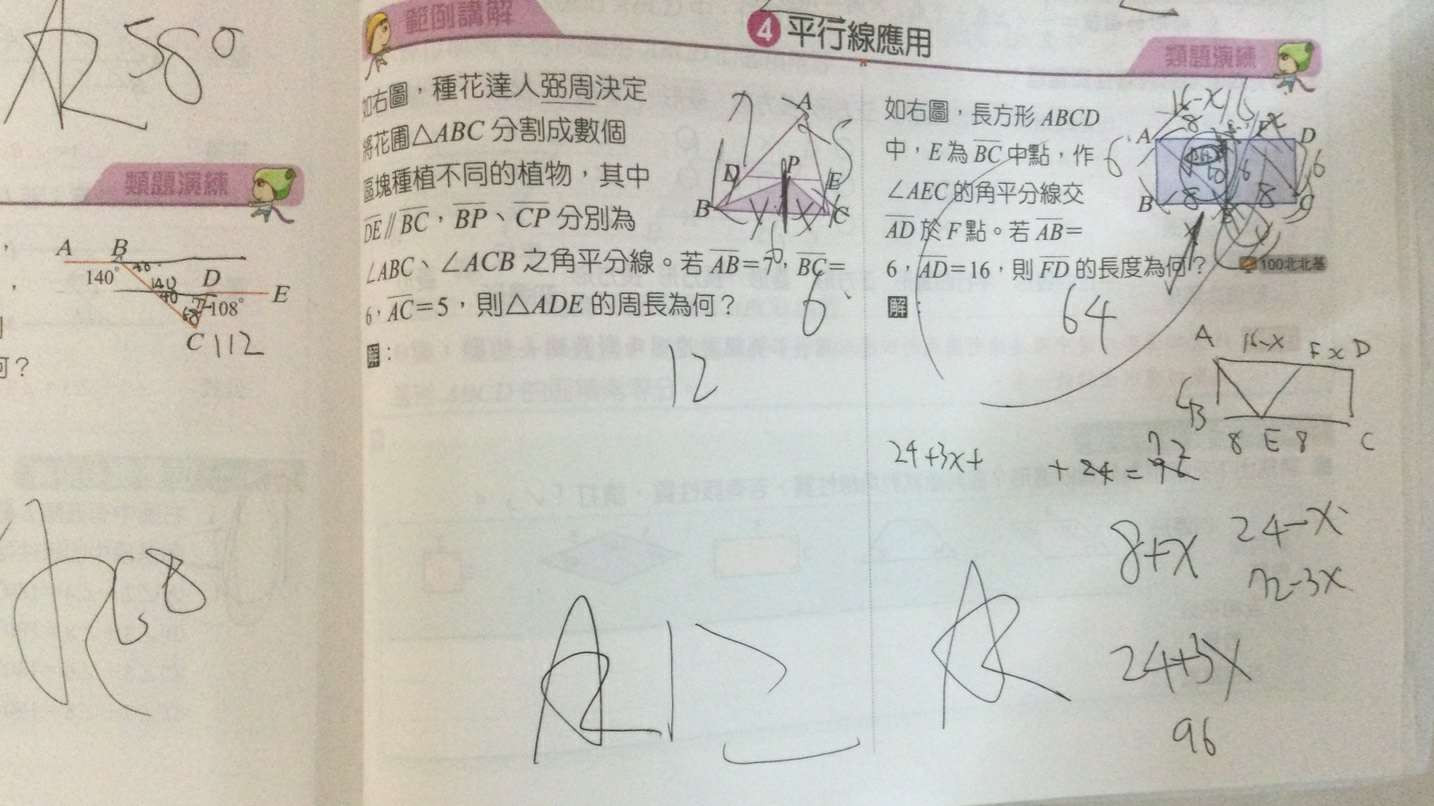 求58°
類題演練
A B
140° 40 140 40 D E
68 72 108°
C 112
何？
求68
範例講解
④ 平行線應用
如右圖，種花達人弼周決定
將花圃△ABC 分割成數個
區塊種植不同的植物，其中
DE // BC，BP、CP 分別為
∠ABC、∠ACB 之角平分線。若 AB=7，BC=
6，AC=5，則△ADE 的周長為何？
解：
A
7 5
D P E
B x x C
6
12
A12
類題演練
如右圖，長方形 ABCD
中，E 為 BC 中點，作
∠AEC 的角平分線交
AD 於 F 點。若 AB=
6，AD=16，則 FD 的長度為何？
100北北基
解：
16-x
A D
6 6
B 8 8 C
64
A 16-x F x D
B 8 E 8 C
24+3x+ +24=
8+x 24-x
72-3x
24+3x
96